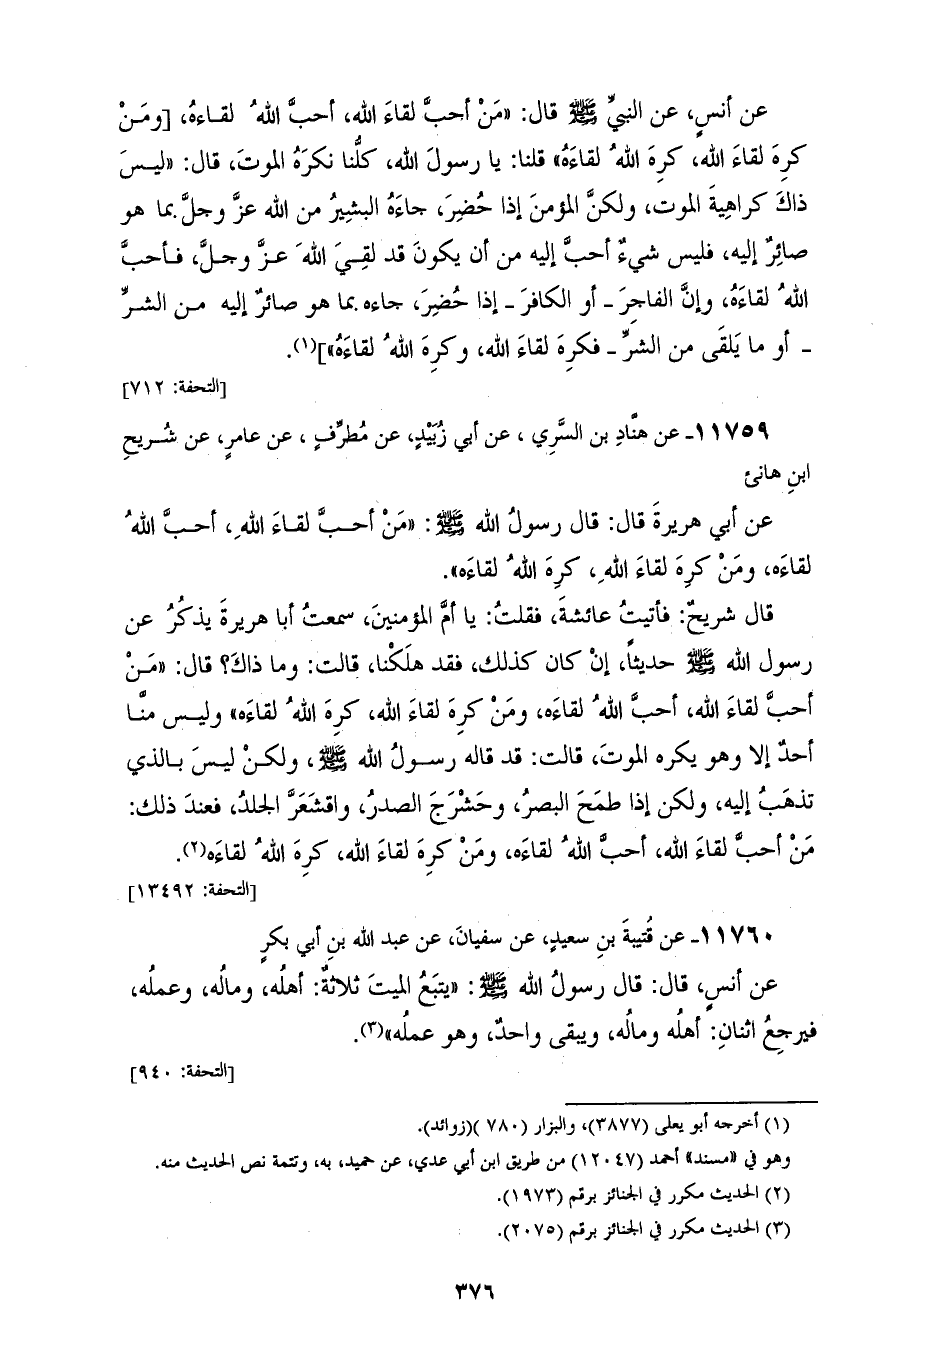 عن أنسٍ، عن النبيِّ ﷺ قال: «مَنْ أحبَّ لقاءَ الله، أحبَّ اللهُ لقـاءهُ، [ومَـنْ
كرِهَ لقاءَ الله، كرِهَ اللهُ لقاءَهُ» قلنا: يا رسولَ الله، كلُّنا نكرَهُ الموتَ، قال: «ليـسَ
ذاكَ كراهِيةَ الموت، ولكنَّ المؤمنَ إذا حُضِرَ، جاءَهُ البشيرُ من الله عزَّ وجلَّ بما هو
صائِرٌ إليه، فليس شيءٌ أحبَّ إليه من أن يكونَ قد لقِـيَ اللهَ عـزَّ وجـلَّ، فـأحبَّ
اللهُ لقاءَهُ، وإنَّ الفاجِرَ ـ أو الكافرَ ـ إذا حُضِرَ، جاءه بما هو صائرٌ إليه مـن الشـرِّ
ـ أو ما يَلقَى من الشرِّ ـ فكرِهَ لقاءَ الله، وكرِهَ اللهُ لقاءَهُ»](١).
[التحفة: ٧١٢]
١١٧٥٩ـ عن هنَّادِ بن السَّرِي ، عن أبي زُبَيْدٍ، عن مُطرِّفٍ ، عن عامرٍ، عن شُـريحِ
ابنِ هانئ
عن أبي هريرةَ قال: قال رسولُ الله ﷺ : «مَنْ أحـبَّ لقـاءَ اللهِ، أحـبَّ اللهُ
لقاءَه، ومَنْ كرِهَ لقاءَ اللهِ، كرِهَ اللهُ لقاءَه».
قال شريحٌ: فأتيتُ عائشةَ، فقلتُ: يا أمَّ المؤمنينَ، سمعتُ أبا هريرةَ يذكُرُ عن
رسول الله ﷺ حديثاً، إنْ كان كذلك، فقد هلَكْنا، قالت: وما ذاكَ؟ قال: «مَـنْ
أحبَّ لقاءَ الله، أحبَّ اللهُ لقاءَه، ومَنْ كرِهَ لقاءَ الله، كرِهَ اللهُ لقاءَه» وليـس منَّـا
أحدٌ إلا وهو يكره الموتَ، قالت: قد قاله رسـولُ الله ﷺ، ولكـنْ ليـسَ بـالذي
تذهَبُ إليه، ولكن إذا طمَحَ البصرُ، وحَشْرَجَ الصدرُ، واقشَعَرَّ الجلدُ، فعندَ ذلك:
مَنْ أحبَّ لقاءَ الله، أحبَّ اللهُ لقاءَه، ومَنْ كرِهَ لقاءَ الله، كرِهَ اللهُ لقاءَه(٢).
[التحفة: ١٣٤٩٢]
١١٧٦٠ـ عن قُتيبةَ بنِ سعيدٍ، عن سفيانَ، عن عبد الله بنِ أبي بكرٍ
عن أنسٍ، قال: قال رسولُ الله ﷺ : «يتبَعُ الميتَ ثلاثةٌ: أهلُه، ومالُه، وعملُه،
فيرجِعُ اثنانِ: أهلُه ومالُه، ويبقى واحدٌ، وهو عملُه»(٣).
[التحفة: ٩٤٠]
(١) أخرجه أبو يعلى (٣٨٧٧)، والبزار (٧٨٠)(زوائد).
وهو في «مسند» أحمد (١٢٠٤٧) من طريق ابن أبي عدي، عن حميد، به، وتتمة نص الحديث منه.
(٢) الحديث مكرر في الجنائز برقم (١٩٧٣).
(٣) الحديث مكرر في الجنائز برقم (٢٠٧٥).
٣٧٦